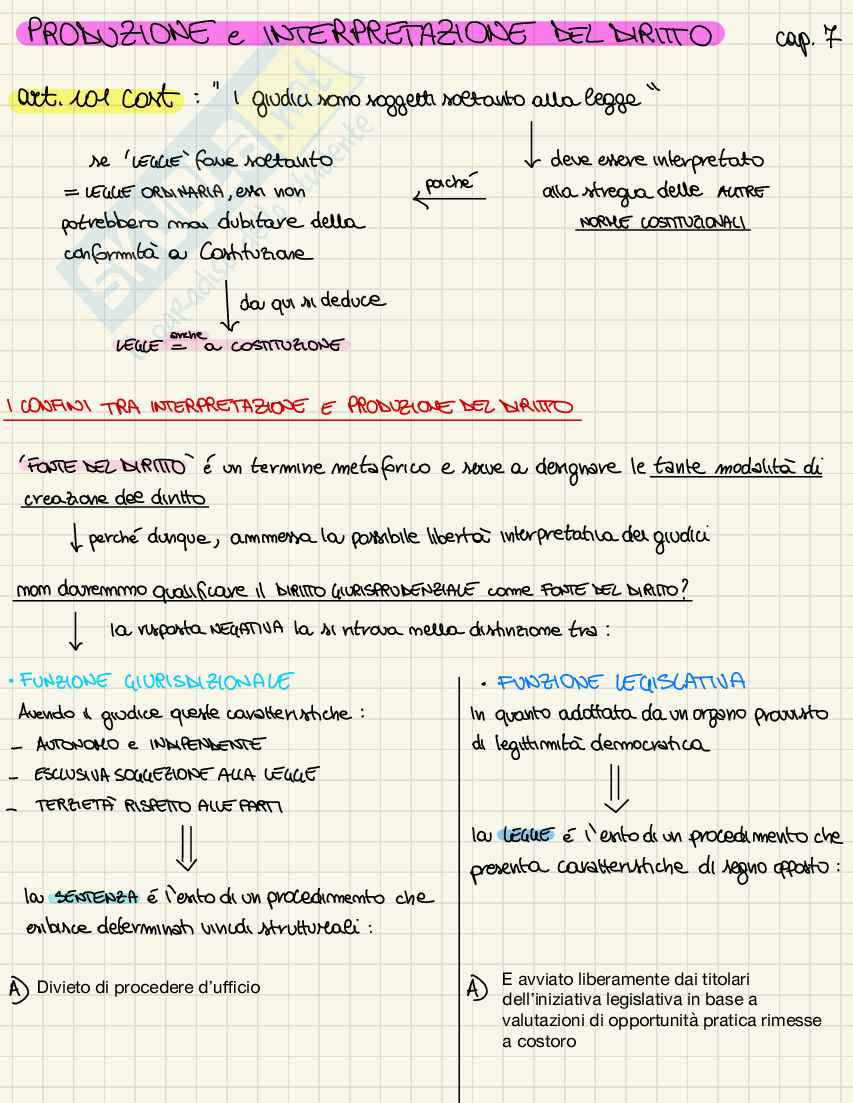 PRODUZIONE e INTERPRETAZIONE DEL DIRITTO cap. 7
art. 101 COST : " I giudici sono soggetti soltanto alla legge "
deve essere interpretato
alla stregua delle ALTRE
NORME COSTITUZIONALI
poiché
se 'LEGGE' fosse soltanto
= LEGGE ORDINARIA, essi non
potrebbero mai dubitare della
conformità a Costituzione
da qui si deduce
anche
LEGGE = a COSTITUZIONE
I CONFINI TRA INTERPRETAZIONE E PRODUZIONE DEL DIRITTO
'FONTE DEL DIRITTO' é un termine metaforico e serve a designare le tante modalità di
creazione del diritto
perché dunque, ammessa la possibile libertà interpretativa dei giudici
non dovremmo qualificare il DIRITTO GIURISPRUDENZIALE come FONTE DEL DIRITTO?
la risposta NEGATIVA la si ritrova nella distinzione tra :
• FUNZIONE GIURISDIZIONALE
Avendo il giudice queste caratteristiche :
– AUTONOMO e INDIPENDENTE
– ESCLUSIVA SOGGEZIONE ALLA LEGGE
– TERZIETÀ RISPETTO ALLE PARTI
la SENTENZA é l'esito di un procedimento che
esibisce determinati vincoli strutturali :
A) Divieto di procedere d'ufficio
• FUNZIONE LEGISLATIVA
In quanto adottata da un organo provvisto
di legittimità democratica
la LEGGE é l'esito di un procedimento che
presenta caratteristiche di segno opposto :
A) E avviato liberamente dai titolari
dell'iniziativa legislativa in base a
valutazioni di opportunità pratica rimesse
a costoro
SKUOLA.net
il paradiso dello studente